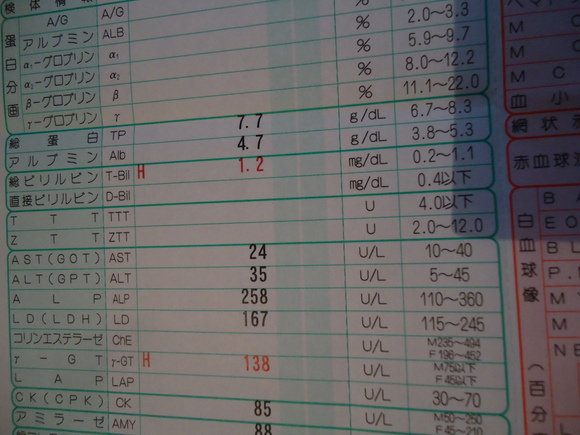 検体情報
A/G A/G % 2.0～3.3
アルブミン ALB % 5.9～9.7
α₁-グロブリン α₁ % 8.0～12.2
α₂-グロブリン α₂ % 11.1～22.0
β-グロブリン β
γ-グロブリン γ
蛋白分画
総蛋白 TP 7.7 g/dL 6.7～8.3
アルブミン Alb 4.7 g/dL 3.8～5.3
総ビリルビン T-Bil H 1.2 mg/dL 0.2～1.1
直接ビリルビン D-Bil mg/dL 0.4以下
TTT TTT U 4.0以下
ZTT ZTT U 2.0～12.0
AST(GOT) AST 24 U/L 10～40
ALT(GPT) ALT 35 U/L 5～45
ALP ALP 258 U/L 110～360
LD(LDH) LD 167 U/L 115～245
コリンエステラーゼ ChE U/L M235～494 F196～452
γ-GT γ-GT H 138 U/L M75以下 F45以下
LAP LAP U/L 30～70
CK(CPK) CK 85 U/L M50～250 F45～210
アミラーゼ AMY 88
ヘマト
M C
M C
M C
血小
網状
赤血球
白血球像(百分
B A
E O
B L
P.
M
M
N E
L